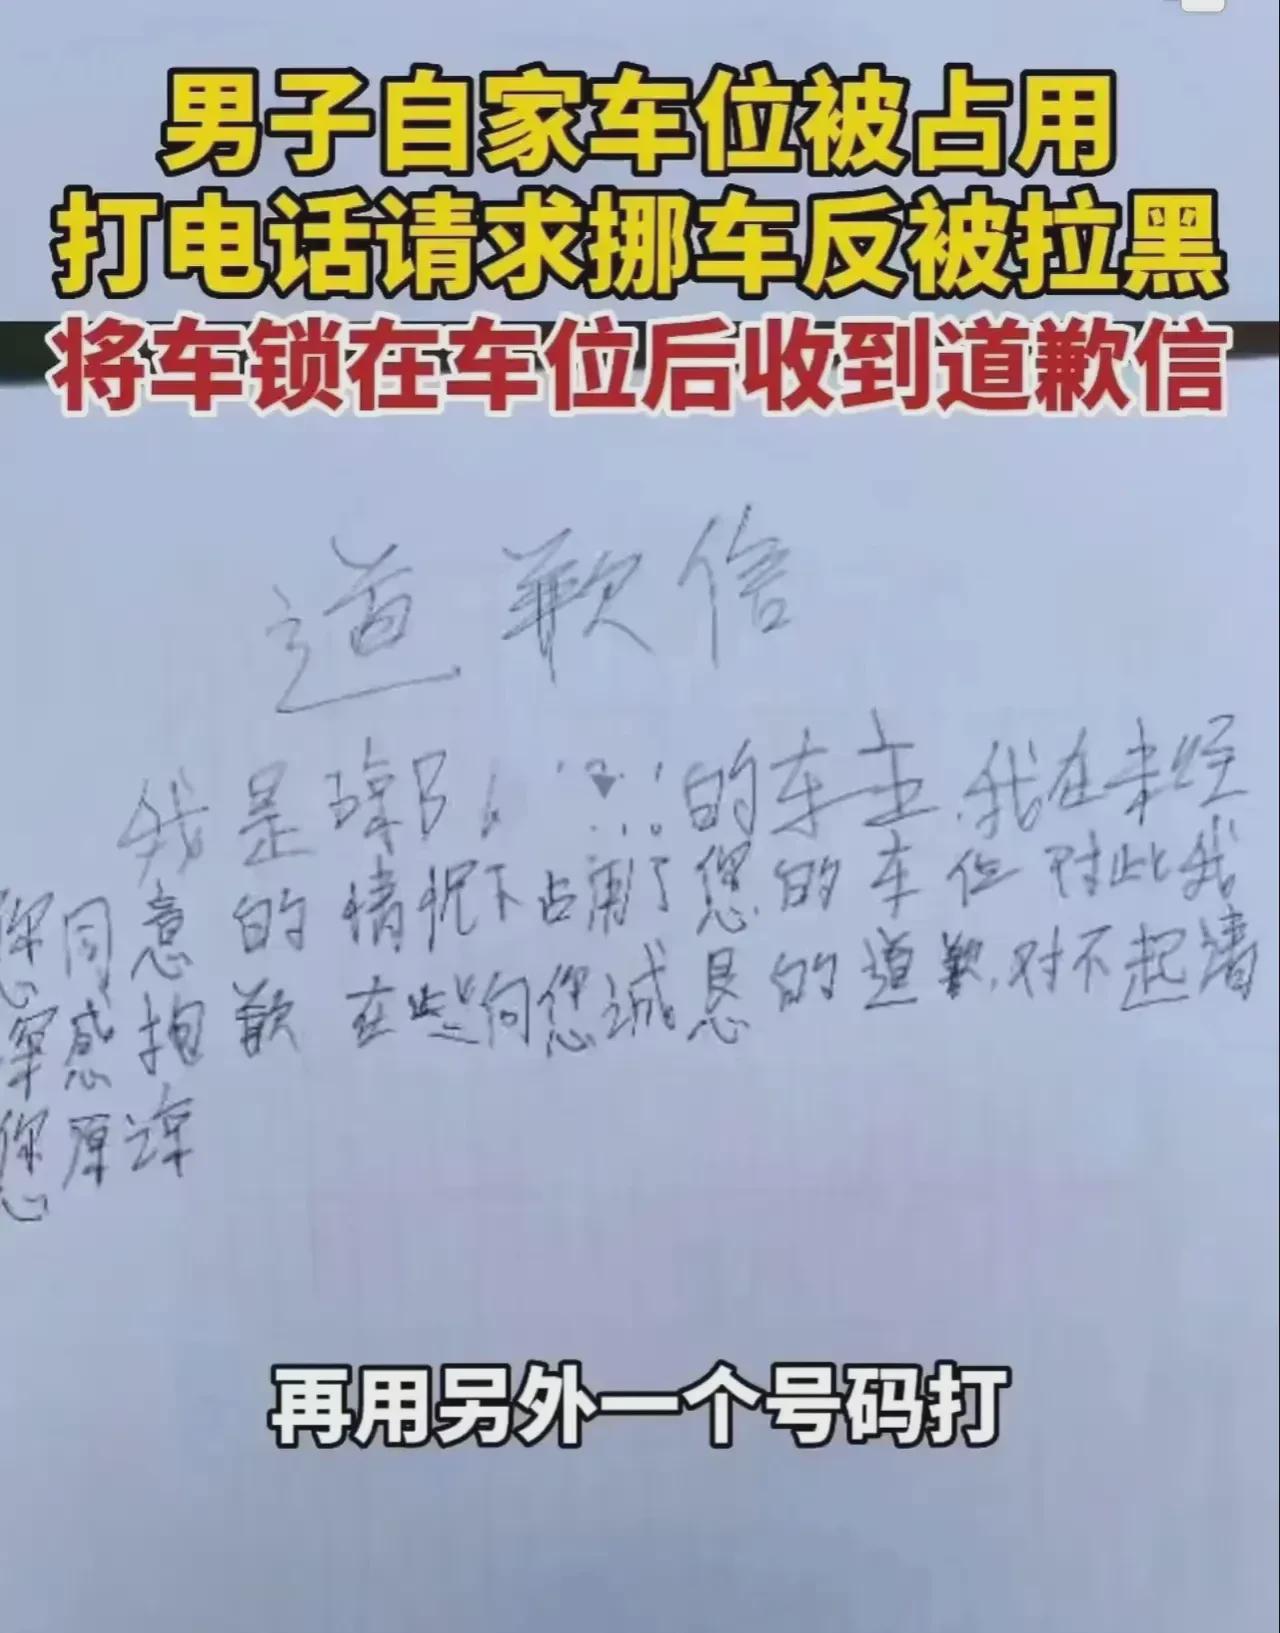 男子自家车位被占用
打电话请求挪车反被拉黑
将车锁在车位后收到道歉信
道歉信
我是
的车主,我在未经
您同意的情况下占用了您的车位 对此我
深感抱歉 在些向您诚恳的道歉,对不起请
您原谅
再用另外一个号码打